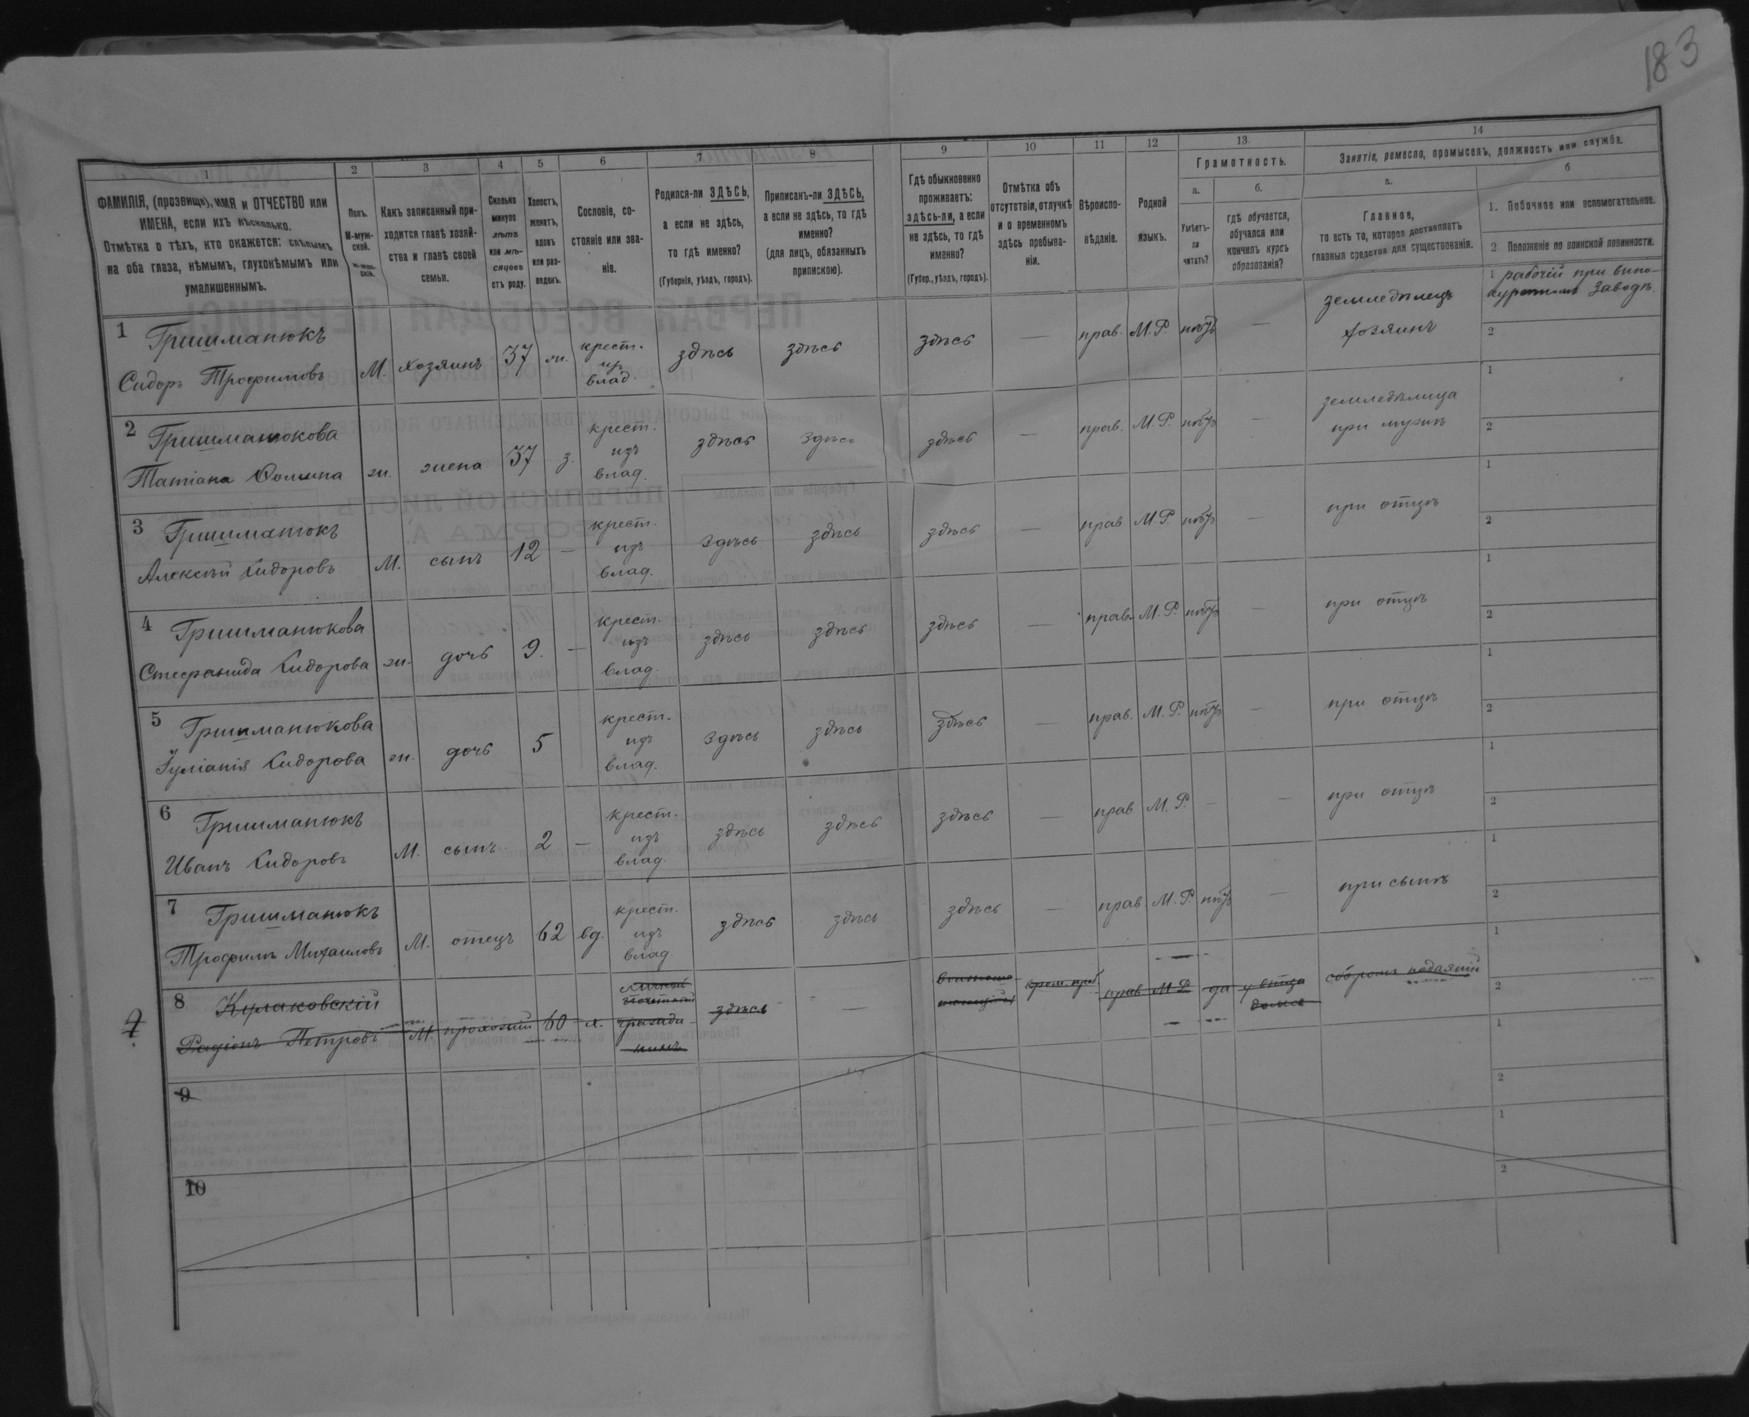 183
1
2
3
4
5
6
7
8
9
10
11
12
13.
14
ФАМИЛІЯ, (прозвище), ИМЯ и ОТЧЕСТВО или
ИМЕНА, если ихъ нѣсколько.
Отмѣтка о тѣхъ, кто окажется: слѣпымъ
на оба глаза, нѣмымъ, глухонѣмымъ или
умалишеннымъ.
Полъ.
М-муж-
ской.
Какъ записанный при-
ходится главѣ хозяй-
ства и главѣ своей
семьи.
Сколько
минуло
лѣтъ
или мѣ-
сяцевъ
отъ роду.
Холостъ,
женатъ,
вдовъ
или раз-
веденъ.
Сословіе, со-
стояніе или зва-
ніе.
Родился-ли ЗДѢСЬ,
а если не здѣсь,
то гдѣ именно?
(Губернія, уѣздъ, городъ).
Приписанъ-ли ЗДѢСЬ,
а если не здѣсь, то гдѣ
именно?
(для лицъ, обязанныхъ
припискою).
Гдѣ обыкновенно
проживаетъ:
здѣсь-ли, а если
не здѣсь, то гдѣ
именно?
(Губер., уѣздъ, городъ).
Отмѣтка объ
отсутствіи, отлучкѣ
и о временномъ
здѣсь пребыва-
ніи.
Вѣроиспо-
вѣданіе.
Родной
языкъ.
Грамотность.
а.
Умѣетъ-
ли
читать?
б.
гдѣ обучается,
обучался или
кончилъ курсъ
образованія?
Занятіе, ремесло, промыселъ, должность или служба.
а.
Главное,
то есть то, которое доставляетъ
главныя средства для существованія.
б
1. Побочное или вспомогательное.
2 Положеніе по воинской повинности.
1 Гришманюкъ
Сидоръ Трофимовъ М. хозяинъ 37 ж. крест. изъ влад. здѣсь здѣсь здѣсь — прав. М.Р. нѣтъ — земледѣлецъ хозяинъ 1 рабочій при вино-
заводѣ.
2
2 Гришманюкова
Татіана Фомина ж. жена 37 з. крест. изъ влад. здѣсь здѣсь здѣсь — прав. М.Р. нѣтъ — земледѣлица при мужѣ 1
2
3 Гришманюкъ
Алексѣй Сидоровъ М. сынъ 12 — крест. изъ влад. здѣсь здѣсь здѣсь — прав М.Р. нѣтъ — при отцѣ 1
2
4 Гришманюкова
Стефанида Сидорова ж. дочь 9. — крест. изъ влад. здѣсь здѣсь здѣсь — прав. М.Р. нѣтъ — при отцѣ 1
2
5 Гришманюкова
Іуліанія Сидорова ж. дочь 5 крест. изъ влад. здѣсь здѣсь здѣсь — прав. М.Р. нѣтъ — при отцѣ 1
2
6 Гришманюкъ
Иванъ Сидоровъ М. сынъ 2 — крест. изъ влад. здѣсь здѣсь здѣсь — прав М.Р. — — при отцѣ 1
2
7 Гришманюкъ
Трофимъ Михаиловъ М. отецъ 62 вд. крест. изъ влад. здѣсь здѣсь здѣсь — прав М.Р. нѣтъ — при сынѣ 1
2
8 Кулаковскій
Радіонъ Петровъ М. прохожій 60 х. личный почетный гражда-
нинъ здѣсь — прав М.Р. да дома сборомъ подаяній 1
2
9
1
2
10
1
2